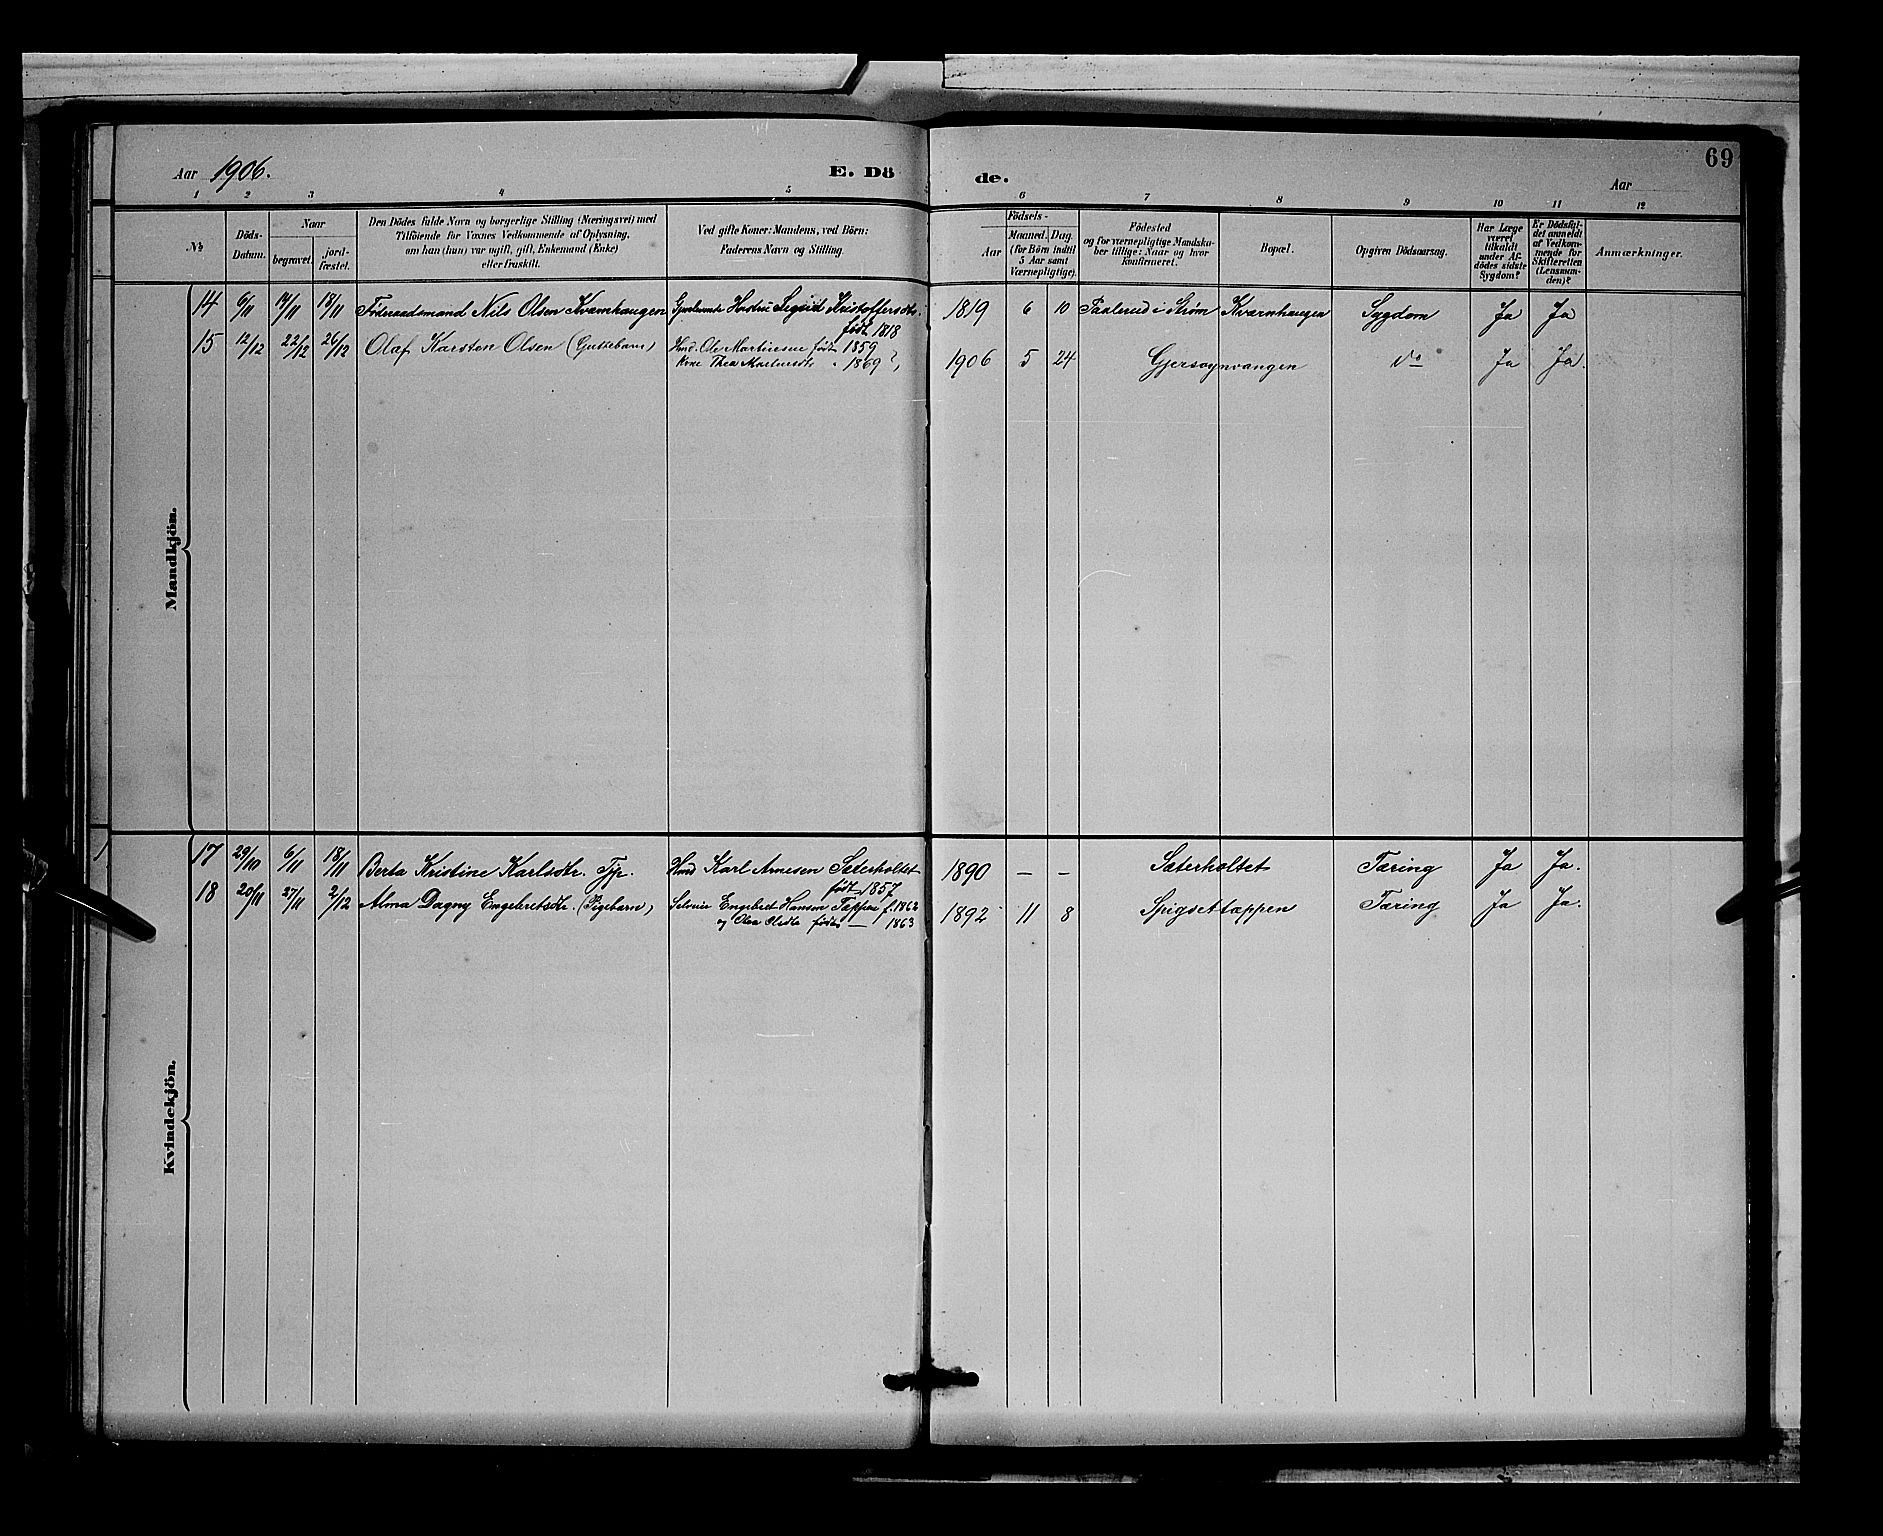 69
Aar 1906.
E. Dö de.
Aar
1 2 3 4 5 6 7 8 9 10 11 12
№
Döds-
Datum.
Naar
begravet.
jord-
fæstet.
Den Dödes fulde Navn og borgerlige Stilling (Næringsvei) med
Tilföiende for Voxnes Vedkommende af Oplysning,
om han (hun) var ugift, gift, Enkemand (Enke)
eller fraskilt.
Ved gifte Koner: Mandens, ved Börn:
Faderens Navn og Stilling.
Födsels-
Aar
Maaned. Dag.
(for Börn indtil
5 Aar samt
Værnepligtige).
Födested
og for værnepligtige Mandska-
ber tillige: Naar og hvor
konfirmeret.
Bopæl.
Opgiven Dödsaarsag.
Har Læge
været
tilkaldt
under Af-
dödes sidste
Sygdom?
Er Dödsfal-
det anmeldt
af Vedkom-
mende for
Skifteretten
(Lensman-
den)?
Anmærkninger.
Mandkjön.
14 6/11 17/11 18/11 Föderaadsmand Nils Olsen Kvarnhaugen Hustru Sigrid Kristoffersdtr. 1819 6 10 Paalerud i Strøm Kvarnhaugen Sygdom Ja Ja
født 1818
15 12/12 22/12 26/12 Olaf Karsten Olsen (Guttebarn) Hmd. Ole Martinsen født 1859
Kone Thea Martinsdtr " 1869 1906 5 24 Gjersøgnvangen Do Ja Ja.
Kvindekjön.
17 29/10 6/11 18/11 Berta Kristine Karlsdtr. Tjp. Hmd Karl Arnesen Sæterholtet 1890 – – Sæterholtet Tæring Ja Ja.
født 1857
18 20/11 27/11 2/12 Alma Dagny Engebretsdtr. (Pigebarn) Selveier Engebret Hansen Tappen f. 1862 1892 11 8 Spigsettappen Tæring Ja Ja.
og Olea Olsdtr født — 1863